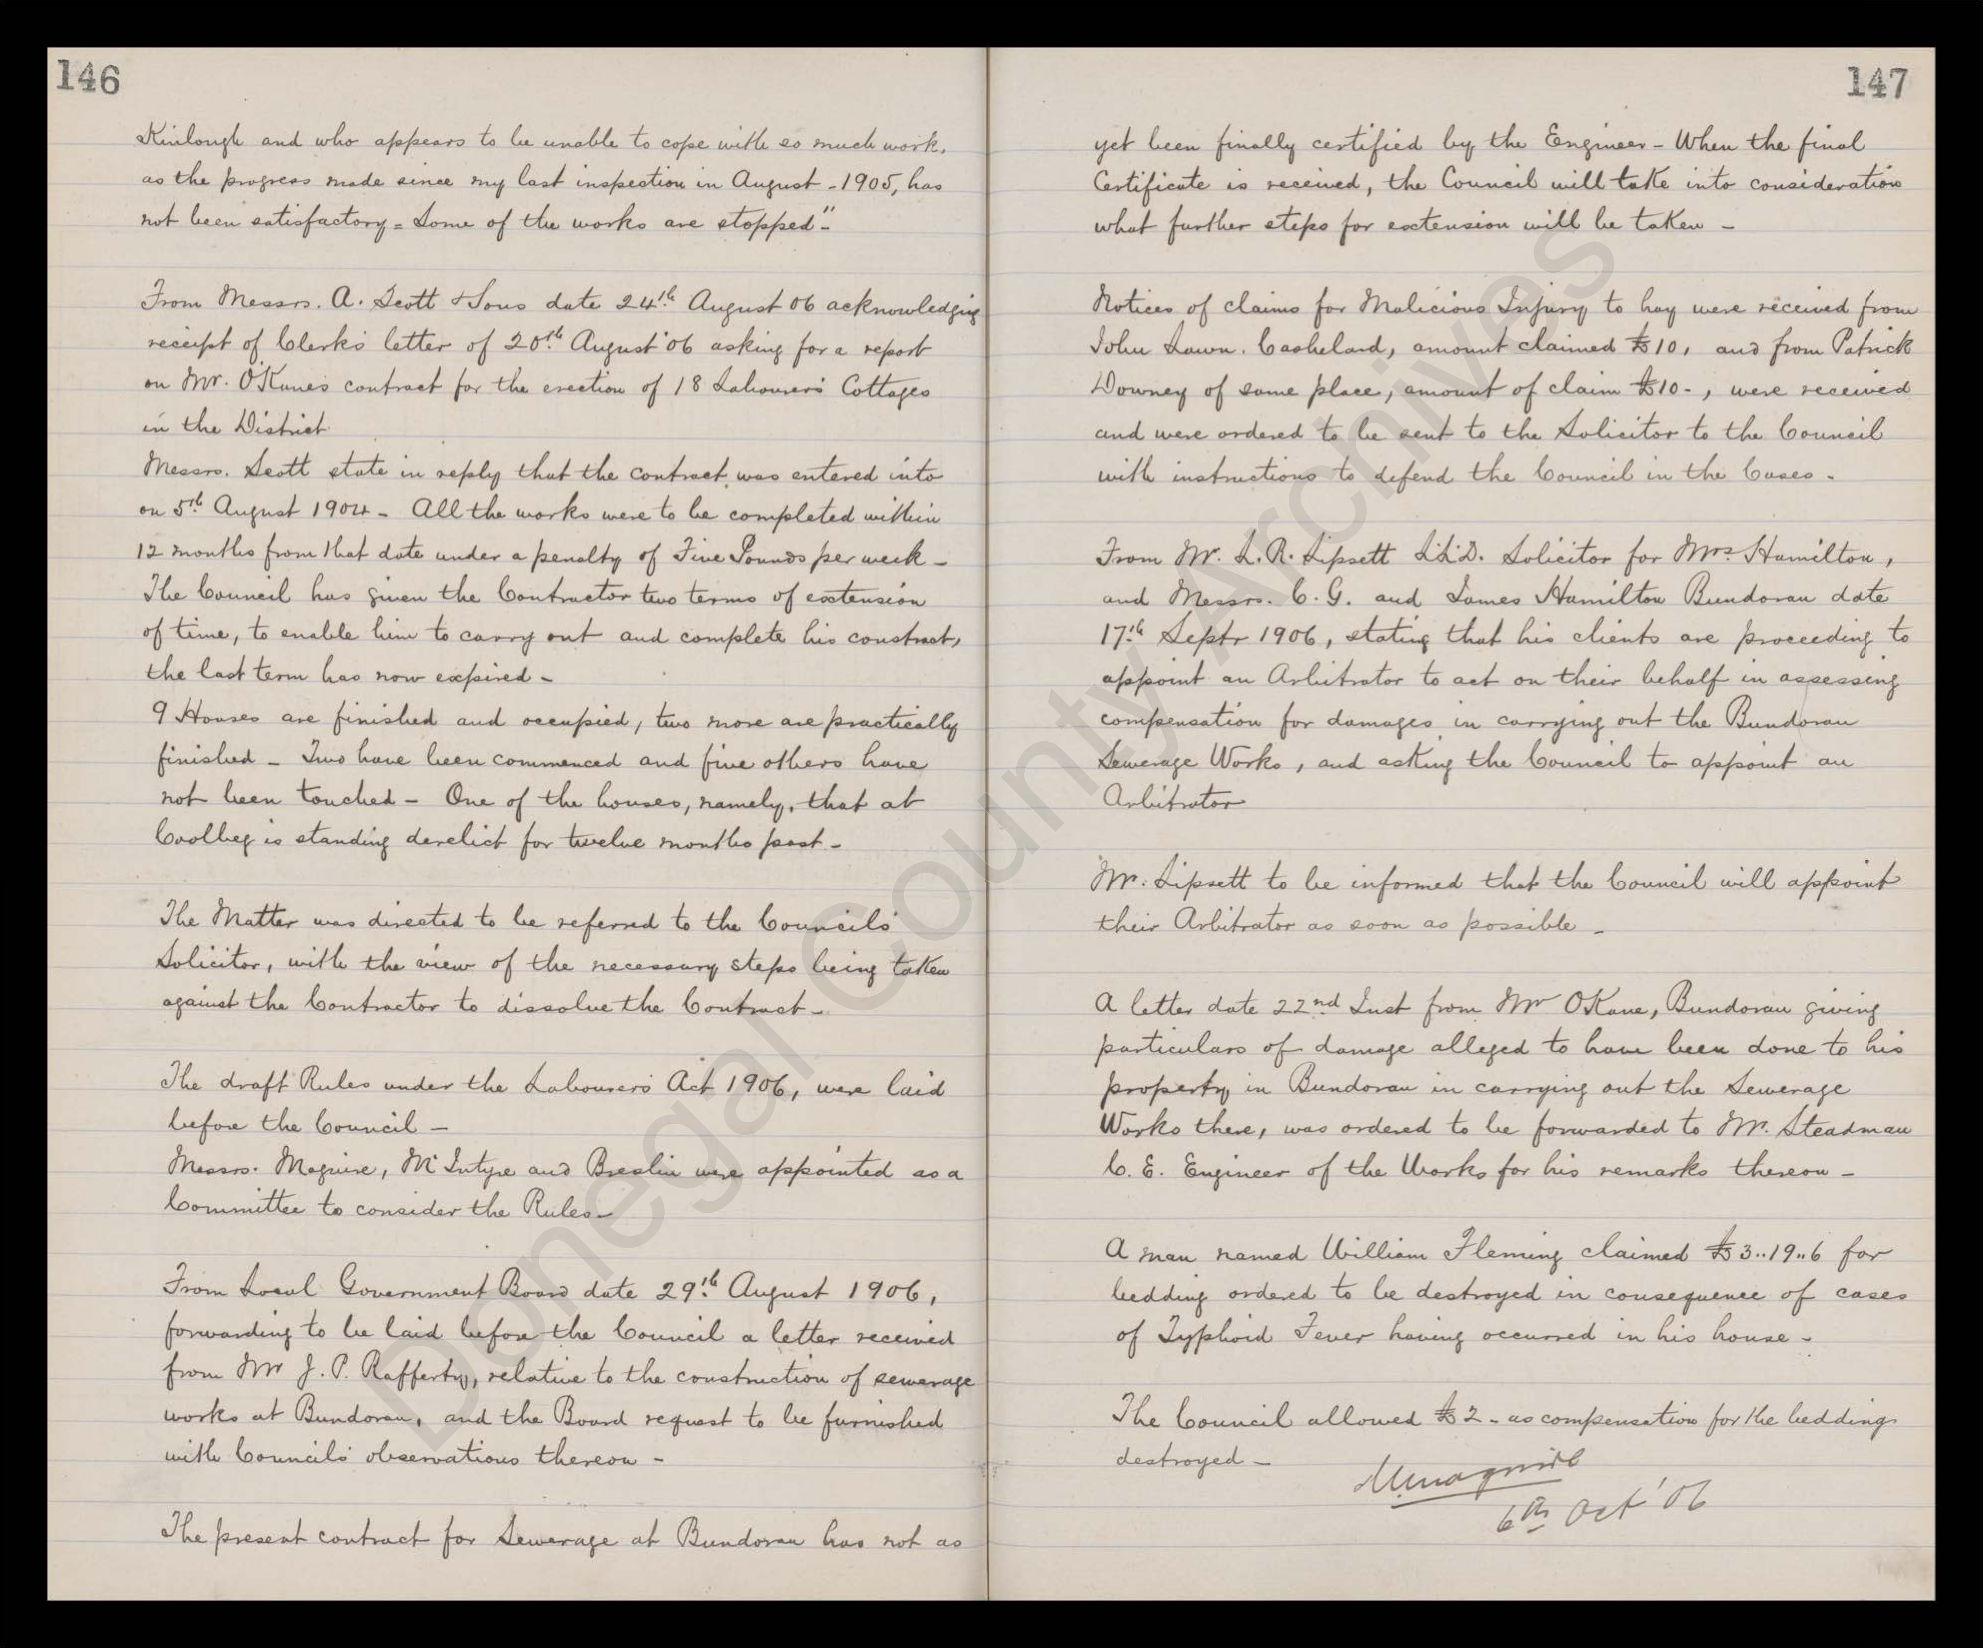 146
Kinlough and who appears to be unable to cope with so much work,
as the progress made since my last inspection in August - 1905, has
not been satisfactory = Some of the works are stopped" -
From Messrs. A. Scott & Sons date 24th August 06 acknowledging
receipt of Clerk's letter of 20th August '06 asking for a report
on Mr. O'Kane's contract for the erection of 18 Labourers' Cottages
in the District
Messrs. Scott state in reply that the contract was entered into
on 5th August 1904 - All the works were to be completed within
12 months from that date under a penalty of Five Pounds per week -
The Council has given the Contractor two terms of extension
of time, to enable him to carry out and complete his constract,
the last term has now expired -
9 Houses are finished and occupied, two more are practically
finished - Two have been commenced and five others have
not been touched - One of the houses, namely, that at
Coolbeg is standing derelict for twelve months past -
The Matter was directed to be referred to the Councils'
Solicitor, with the view of the necessary steps being taken
against the Contractor to dissolve the Contract -
The draft Rules under the Labourers' Act 1906, were laid
before the Council -
Messrs. Maguire, McIntyre and Breslin were appointed as a
Committee to consider the Rules -
From Local Government Board date 29th August 1906,
forwarding to be laid before the Council a letter received
from Mr J. P. Rafferty, relative to the construction of sewerage
works at Bundoran, and the Board request to be furnished
with Council's observations thereon -
The present contract for Sewerage at Bundoran has not as
147
yet been finally certified by the Engineer - When the final
Certificate is received, the Council will take into consideration
what further steps for extension will be taken -
Notices of claims for Malicious Injury to hay were received from
John Lawn. Cashelard, amount claimed £10, and from Patrick
Downey of same place, amount of claim £10 -, were received
and were ordered to be sent to the Solicitor to the Council
with instructions to defend the Council in the Cases -
From Mr. L. R. Lipsett LL.D. Solicitor for Mrs Hamilton,
and Messrs. C. G. and James Hamilton Bundoran date
17th Septr 1906, stating that his clients are proceeding to
appoint an Arbitrator to act on their behalf in assessing
compensation for damages in carrying out the Bundoran
Sewerage Works, and asking the Council to appoint an
Arbitrator
Mr. Lipsett to be informed that the Council will appoint
their Arbitrator as soon as possible -
A letter date 22nd Inst from Mr OKane, Bundoran giving
particulars of damage alleged to have been done to his
property in Bundoran in carrying out the Sewerage
Works there, was ordered to be forwarded to Mr. Steadman
C. E. Engineer of the Works for his remarks thereon -
A man named William Fleming claimed £3..19..6 for
bedding ordered to be destroyed in consequence of cases
of Typhoid Fever having occurred in his house -
The Council allowed £2 - as compensation for the bedding
destroyed -
6th Oct '06
Donegal County Archives